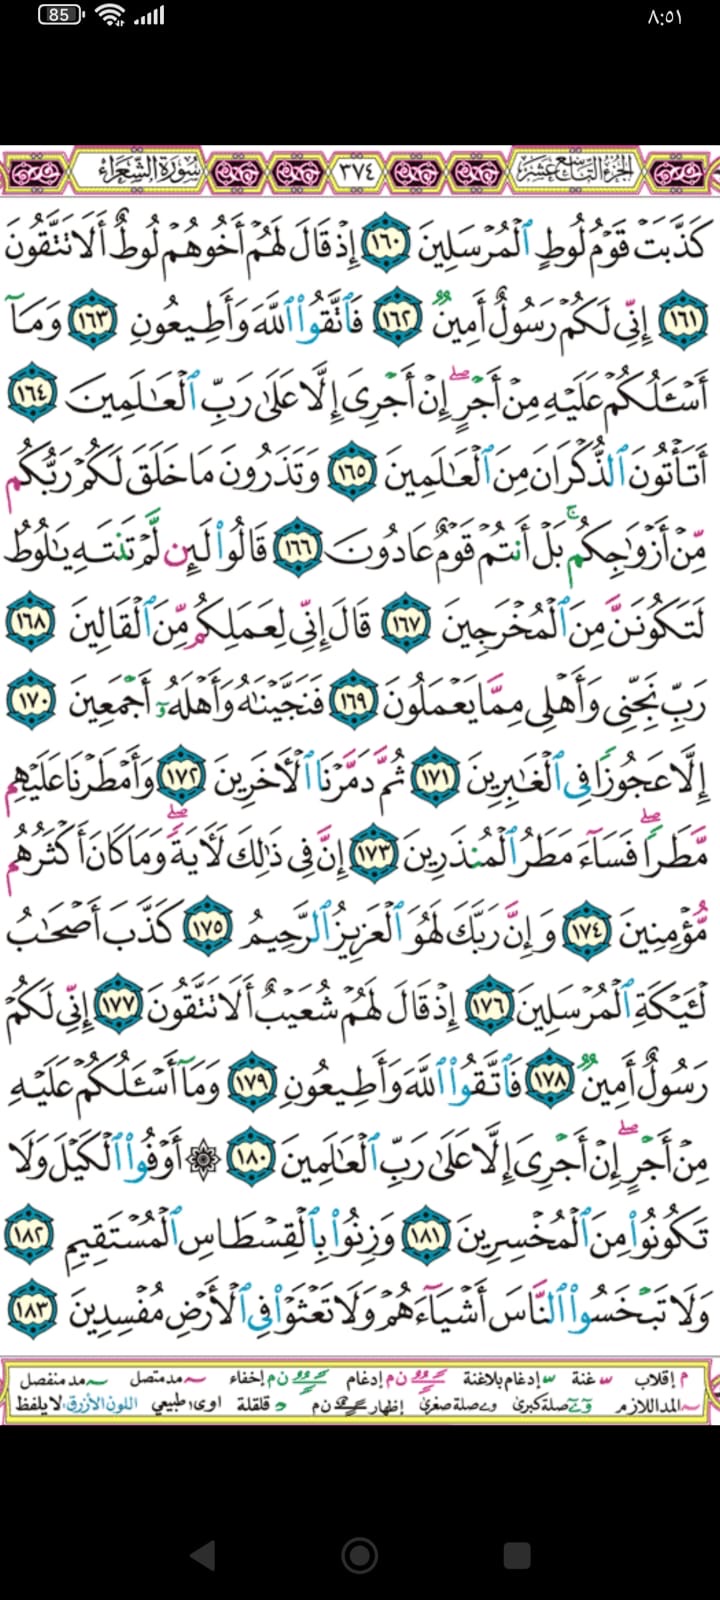 85 ٨:٥١
الجزء التاسع عشر ٣٧٤ سورة الشعراء
كَذَّبَتْ قَوْمُ لُوطٍ ٱلْمُرْسَلِينَ ١٦٠ إِذْ قَالَ لَهُمْ أَخُوهُمْ لُوطٌ أَلَا تَتَّقُونَ
١٦١ إِنِّى لَكُمْ رَسُولٌ أَمِينٌ ١٦٢ فَٱتَّقُوا۟ ٱللَّهَ وَأَطِيعُونِ ١٦٣ وَمَآ
أَسْـَٔلُكُمْ عَلَيْهِ مِنْ أَجْرٍ ۖ إِنْ أَجْرِىَ إِلَّا عَلَىٰ رَبِّ ٱلْعَـٰلَمِينَ ١٦٤
أَتَأْتُونَ ٱلذُّكْرَانَ مِنَ ٱلْعَـٰلَمِينَ ١٦٥ وَتَذَرُونَ مَا خَلَقَ لَكُمْ رَبُّكُم
مِّنْ أَزْوَٰجِكُم ۚ بَلْ أَنتُمْ قَوْمٌ عَادُونَ ١٦٦ قَالُوا۟ لَئِن لَّمْ تَنتَهِ يَـٰلُوطُ
لَتَكُونَنَّ مِنَ ٱلْمُخْرَجِينَ ١٦٧ قَالَ إِنِّى لِعَمَلِكُم مِّنَ ٱلْقَالِينَ ١٦٨
رَبِّ نَجِّنِى وَأَهْلِى مِمَّا يَعْمَلُونَ ١٦٩ فَنَجَّيْنَـٰهُ وَأَهْلَهُۥٓ أَجْمَعِينَ ١٧٠
إِلَّا عَجُوزًا فِى ٱلْغَـٰبِرِينَ ١٧١ ثُمَّ دَمَّرْنَا ٱلْـَٔاخَرِينَ ١٧٢ وَأَمْطَرْنَا عَلَيْهِم
مَّطَرًا ۖ فَسَآءَ مَطَرُ ٱلْمُنذَرِينَ ١٧٣ إِنَّ فِى ذَٰلِكَ لَـَٔايَةً ۖ وَمَا كَانَ أَكْثَرُهُم
مُّؤْمِنِينَ ١٧٤ وَإِنَّ رَبَّكَ لَهُوَ ٱلْعَزِيزُ ٱلرَّحِيمُ ١٧٥ كَذَّبَ أَصْحَـٰبُ
لْـَٔيْكَةِ ٱلْمُرْسَلِينَ ١٧٦ إِذْ قَالَ لَهُمْ شُعَيْبٌ أَلَا تَتَّقُونَ ١٧٧ إِنِّى لَكُمْ
رَسُولٌ أَمِينٌ ١٧٨ فَٱتَّقُوا۟ ٱللَّهَ وَأَطِيعُونِ ١٧٩ وَمَآ أَسْـَٔلُكُمْ عَلَيْهِ
مِنْ أَجْرٍ ۖ إِنْ أَجْرِىَ إِلَّا عَلَىٰ رَبِّ ٱلْعَـٰلَمِينَ ١٨٠ ۞ أَوْفُوا۟ ٱلْكَيْلَ وَلَا
تَكُونُوا۟ مِنَ ٱلْمُخْسِرِينَ ١٨١ وَزِنُوا۟ بِٱلْقِسْطَاسِ ٱلْمُسْتَقِيمِ ١٨٢
وَلَا تَبْخَسُوا۟ ٱلنَّاسَ أَشْيَآءَهُمْ وَلَا تَعْثَوْا۟ فِى ٱلْأَرْضِ مُفْسِدِينَ ١٨٣
م إقلاب غنة إدغام بلاغنة ن م إدغام ن م إخفاء مد متصل مد منفصل
المد اللازم صلة كبرى صلة صغرى إظهار ن م قلقلة اوى طبيعي اللون الأزرق: لا يلفظ